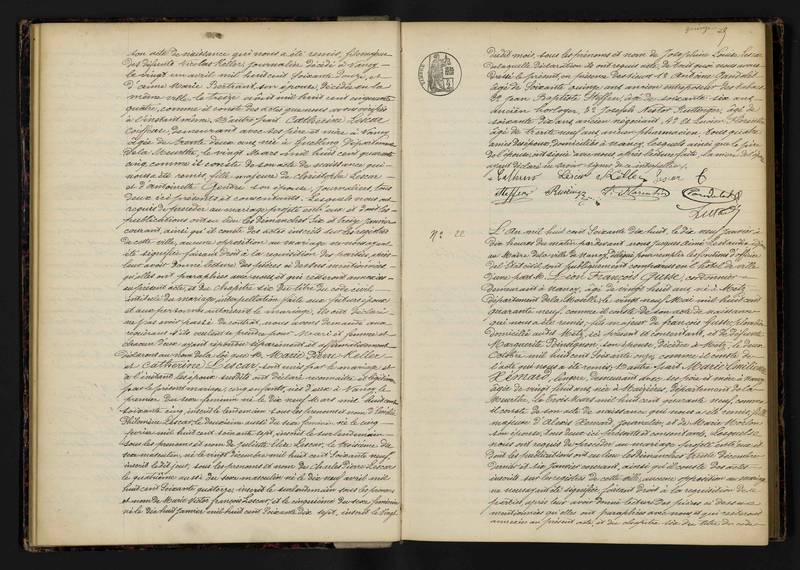 son acte de naissance qui nous a été remis, fils majeur
des défunts Nicolas Keller, journalier décédé à Nancy
le vingt un avril mil huit cent soixante douze, et
d'Anne Marie Bertrand son épouse, décédée en la
même ville le treize août mil huit cent cinquante
quatre, comme il conste des actes
à l'instant même, d'autre part Catherine Lescar
demeurant avec ses père et mère à Nancy
âgée de trente deux ans, née à département
de la Meurthe, le vingt Mars mil huit cent quarante
cinq, comme il conste de son acte de naissance qui
nous a été remis, fille majeure de Christophe Lescar
et d'Antoinette son épouse, journaliers, tous
deux ici présents et consentants. Lesquels nous ont
requis de procéder au mariage projeté entre eux et dont les
publications ont eu lieu les dimanches six et treize janvier
courant, ainsi qu'il conste des actes inscrits sur les registres
de cette ville, aucune opposition au mariage ne nous ayant
été signifiée faisant droit à la réquisition des parties, après
leur avoir donné lecture des pièces ci dessus mentionnées
qu'elles ont paraphées avec nous et qui resteront annexées
au présent acte, et du chapitre six du titre du code civil
intitulé du mariage, interpellation faite aux futurs époux
et aux personnes autorisant le mariage, ils ont déclaré
ne pas avoir passé de contrat, nous avons demandé aux
requérants s'ils veulent se prendre pour Mari et femme et
chacun d'eux ayant répondu séparément et affirmativement
déclarons au nom de la loi que M. Marie Pierre Keller
et Catherine Lescar sont unis par le mariage et
à l'instant les époux susdits ont déclaré reconnaître et légitimer
par le présent mariage, cinq enfants, nés d'eux à Nancy, le
premier du sexe féminin né le dix neuf Mars mil huit cent
soixante cinq, inscrit le lendemain sous les prénoms et nom d'
Philomène Lescar, le deuxième aussi du sexe féminin né le cinq
janvier mil huit cent soixante sept, inscrit le surlendemain
sous les prénoms et nom de Juliette Lescar, le troisième du
sexe masculin, né le vingt décembre mil huit cent soixante neuf,
inscrit le dit jour, sous les prénoms et nom de Charles Pierre Lescar
le quatrième aussi du sexe masculin né le dix neuf avril mil
huit cent soixante quatorze, inscrit le surlendemain sous les prénoms
et nom de Marie Victor François Lescar, et le cinquième du sexe féminin
né le dix huit janvier mil huit cent soixante dix sept, inscrit le vingt
dudit mois, sous les prénoms et nom de Joséphine Louise Lescar
de laquelle déclaration ils ont requis acte, de tout quoi nous avons
dressé le présent, en présence des sieurs 1° Antoine Candidat
âgé de soixante quinze ans, ancien entreposeur des tabacs
2° Jean Baptiste Steffen âgé de soixante six ans
ancien horloger, 3° Joseph Victor âgé de
soixante dix ans ancien négociant, 4° et Lucien Florentin
âgé de trente neuf ans, ancien pharmacien, tous quatre
amis des époux, domiciliés à Nancy, lesquels ainsi que le père
de l'épouse, ont signé avec nous après lecture faite, la mère de l'épouse
ayant déclaré ne
Lescar Keller Lescar C
Steffen L. Florentin Candidat
N° 22
L'An mil huit cent soixante dix huit, le dix neuf janvier à
dix heures du matin par devant nous Jacques Aimé adjoint
au Maire de la ville de Nancy, délégué pour remplir les fonctions d'officier
de l'état civil, ont publiquement comparu en l'hôtel de ville
d'une part M. François cordonnier
demeurant à Nancy, âgé de vingt huit ans, né à Metz
département de la Moselle, le vingt neuf Mai mil huit cent
quarante neuf, comme il conste de son acte de naissance
qui nous a été remis, fils majeur de François
domicilié audit Metz, ici présent et consentant, et de défunte
Marguerite son épouse, décédée à Metz, le deux
octobre mil huit cent soixante onze, comme il conste de
l'acte qui nous a été remis; d'autre part Marie Emilienne
Rémard, demeurant avec ses père et mère à Nancy
âgée de vingt huit ans, née à Maizières, département de la
Meurthe, le trois Mars mil huit cent quarante neuf, comme
il conste de son acte de naissance qui nous a été remis, fille
majeure d'Alexis Rémard, journalier, et de Marie
son épouse, tous deux ici présents et consentants. Lesquels
nous ont requis de procéder au mariage projeté entre eux et
dont les publications ont eu lieu les dimanches trente décembre
dernier et six janvier courant, ainsi qu'il conste des actes
inscrits sur les registres de cette ville, aucune opposition au mariage
ne nous ayant été signifiée, faisant droit à la réquisition des
parties, après leur avoir donné lecture des pièces ci dessus
mentionnées qu'elles ont paraphées avec nous et qui resteront
annexées au présent acte, et du chapitre six du titre du code